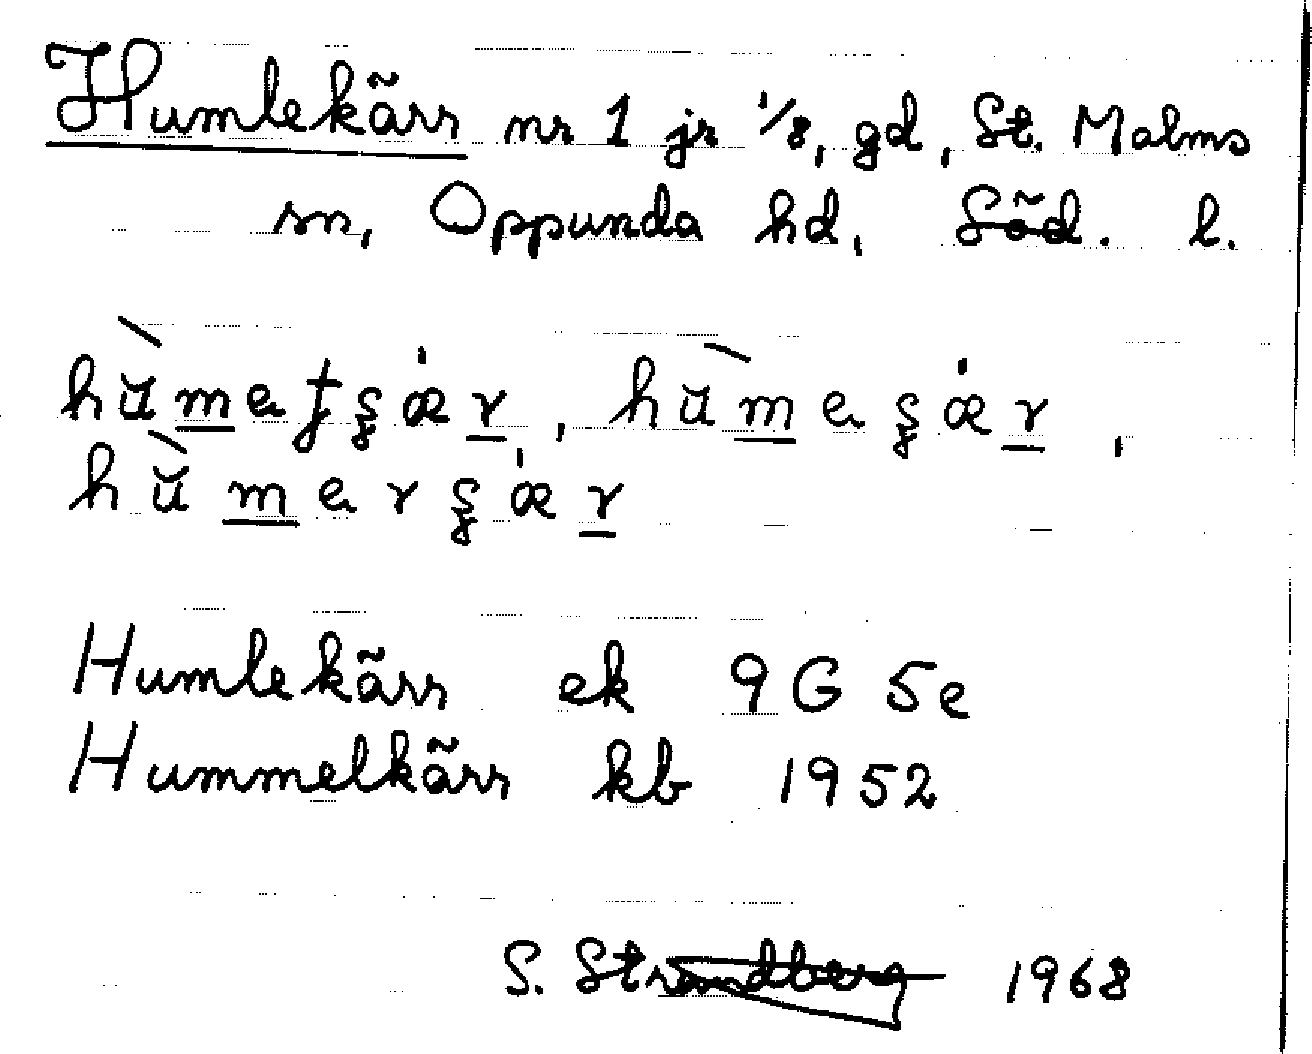 Humlekärr nr 1 jr 1/8, gd, St. Malms
sn, Oppunda hd, Söd. l.
hùmeƭʂæ̇r, hùmeʂæ̇r,
hùmerʂæ̇r
Humlekärr ek 9G 5e
Hummelkärr kb 1952
S. Strandberg 1968